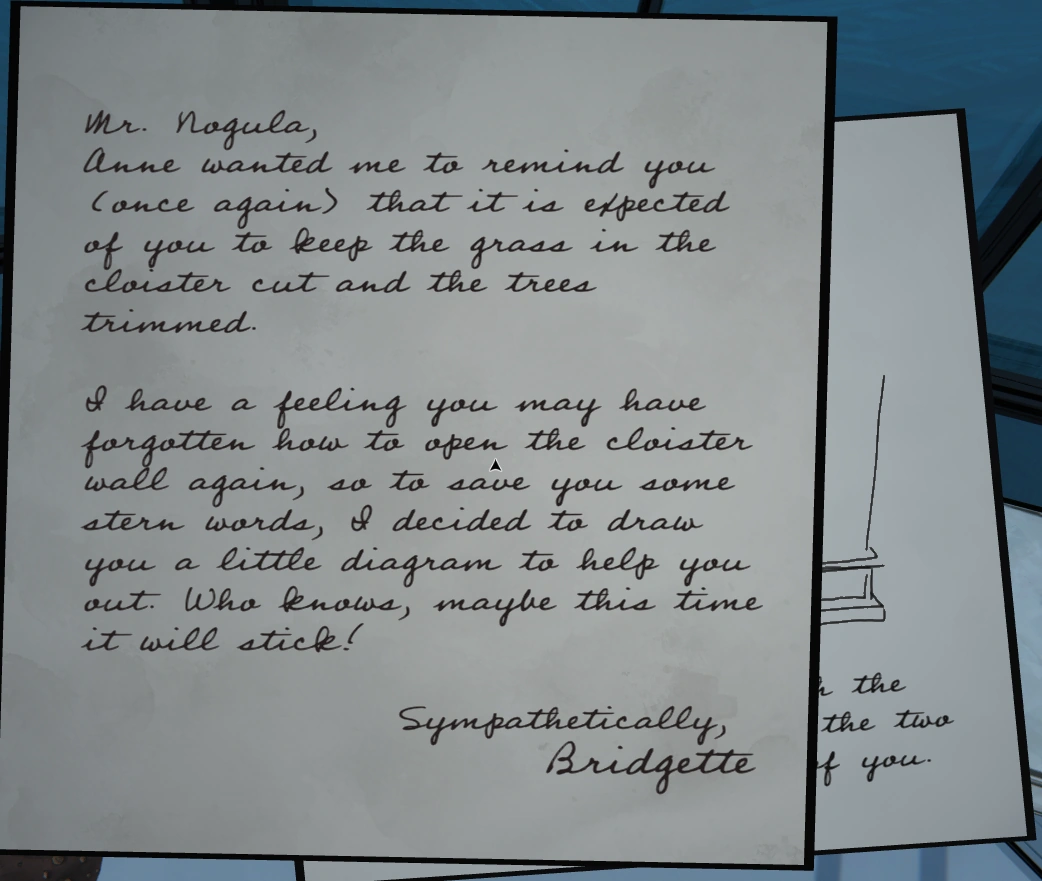 Mr. Nogula,
Anne wanted me to remind you
(once again) that it is expected
of you to keep the grass in the
cloister cut and the trees
trimmed.
I have a feeling you may have
forgotten how to open the cloister
wall again, so to save you some
stern words, I decided to draw
you a little diagram to help you
out. Who knows, maybe this time
it will stick!
Sympathetically,
Bridgette
the
the two
of you.